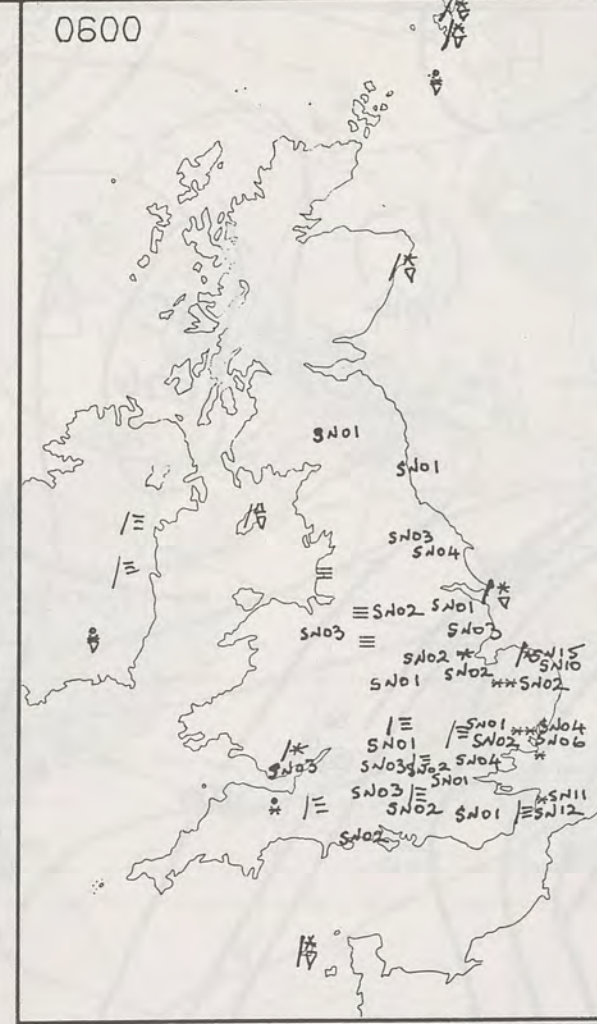 0600
SN01
SN01
SN03
SN04
SN02 SN01
SN03 SN03
SN02 SN15
SN10
SN02
SN01 SN02
SN01 SN04
SN01 SN02 SN06
SN03 SN02 SN04
SN03 SN01
SN03 SN11
SN02 SN01 SN12
SN02